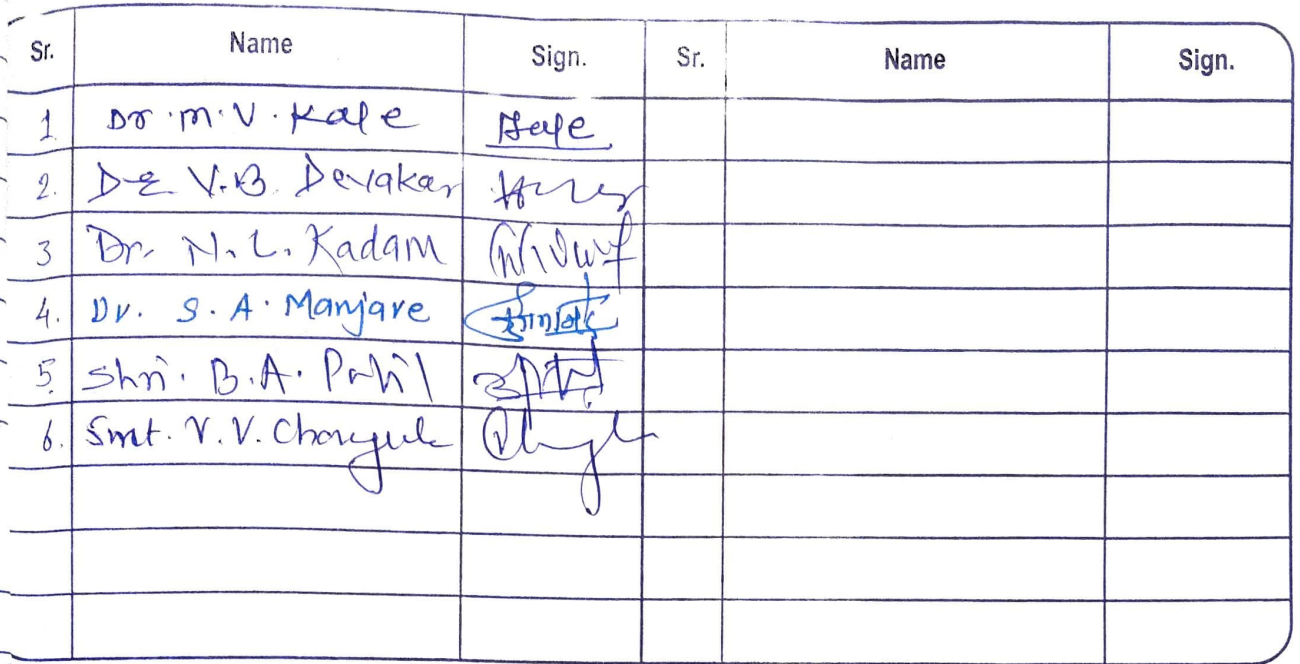 Sr. Name Sign. Sr. Name Sign.
1 Dr. M. V. Kale Hale
2. Dr V.B. Devakar
3 Dr. N. L. Kadam
4. Dr. S. A. Manjare
5. Shri. B.A. Patil
6. Smt. V. V. Chougule